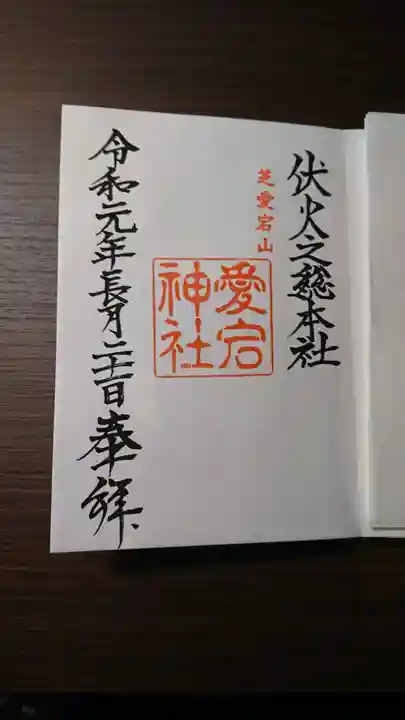 伏火之総本社
芝愛宕山
愛宕
神社
令和元年長月二十一日奉拝